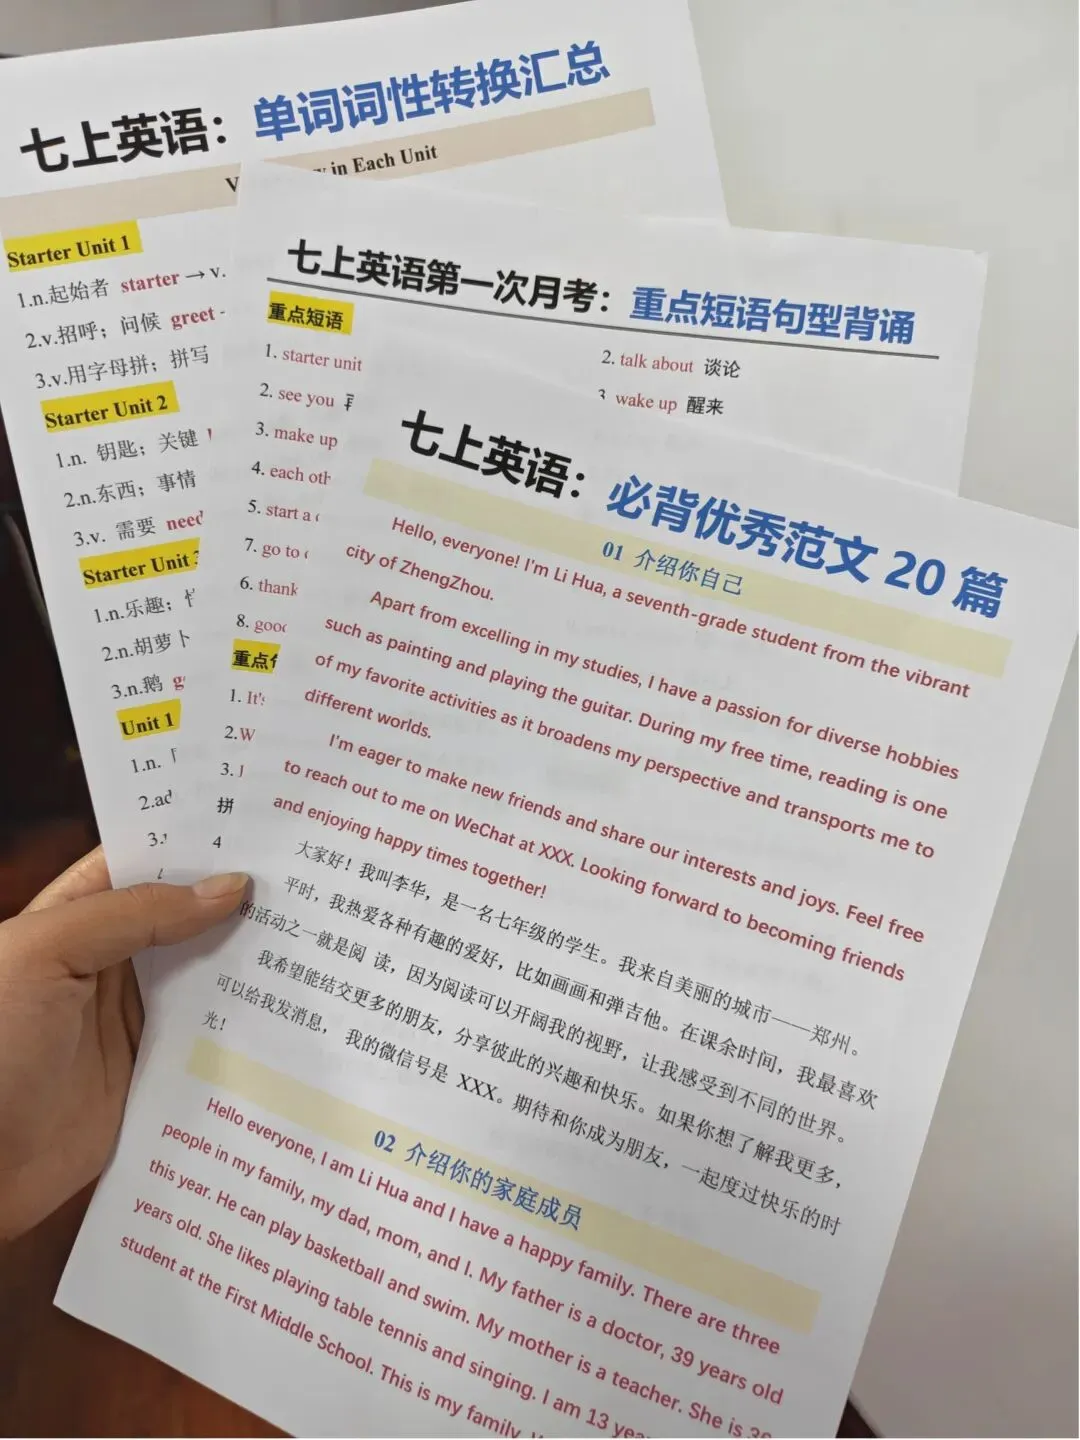 七上英语：单词词性转换汇总
in Each Unit
Starter Unit 1
1.n.起始者 starter → v.
2.v.招呼；问候 greet
3.v.用字母拼；拼写
Starter Unit 2
1.n. 钥匙；关键
2.n.东西；事情
3.v. 需要 need
Starter Unit
1.n.乐趣；
2.n.胡萝卜
3.n.鹅
Unit 1
1.n.
2.ad
3.
七上英语第一次月考：重点短语句型背诵
重点短语
1. starter unit
2. talk about 谈论
2. see you
3. wake up 醒来
3. make up
4. each oth
5. start a
7. go to
6. thank
8. good
重点
1. It's
2.W
3.
拼
4
七上英语：必背优秀范文 20 篇
01 介绍你自己
Hello, everyone! I'm Li Hua, a seventh-grade student from the vibrant
city of ZhengZhou.
Apart from excelling in my studies, I have a passion for diverse hobbies
such as painting and playing the guitar. During my free time, reading is one
of my favorite activities as it broadens my perspective and transports me to
different worlds.
I'm eager to make new friends and share our interests and joys. Feel free
to reach out to me on WeChat at XXX. Looking forward to becoming friends
and enjoying happy times together!
大家好！我叫李华，是一名七年级的学生。我来自美丽的城市——郑州。
平时，我热爱各种有趣的爱好，比如画画和弹吉他。在课余时间，我最喜欢
的活动之一就是阅 读，因为阅读可以开阔我的视野，让我感受到不同的世界。
我希望能结交更多的朋友，分享彼此的兴趣和快乐。如果你想了解我更多，
可以给我发消息， 我的微信号是 XXX。期待和你成为朋友，一起度过快乐的时
光！
02 介绍你的家庭成员
Hello everyone, I am Li Hua and I have a happy family. There are three
people in my family, my dad, mom, and I. My father is a doctor, 39 years old
this year. He can play basketball and swim. My mother is a teacher. She is
years old. She likes playing table tennis and singing. I am 13
student at the First Middle School. This is my family.